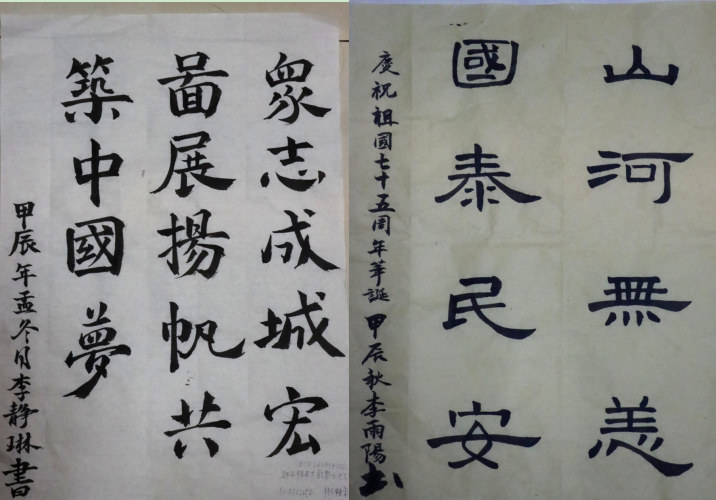 眾志成城宏
啚展揚帆共
築中國夢
甲辰年孟冬月李靜琳書
山河無恙
國泰民安
慶祝祖國七十五周年華誕甲辰秋李雨陽书